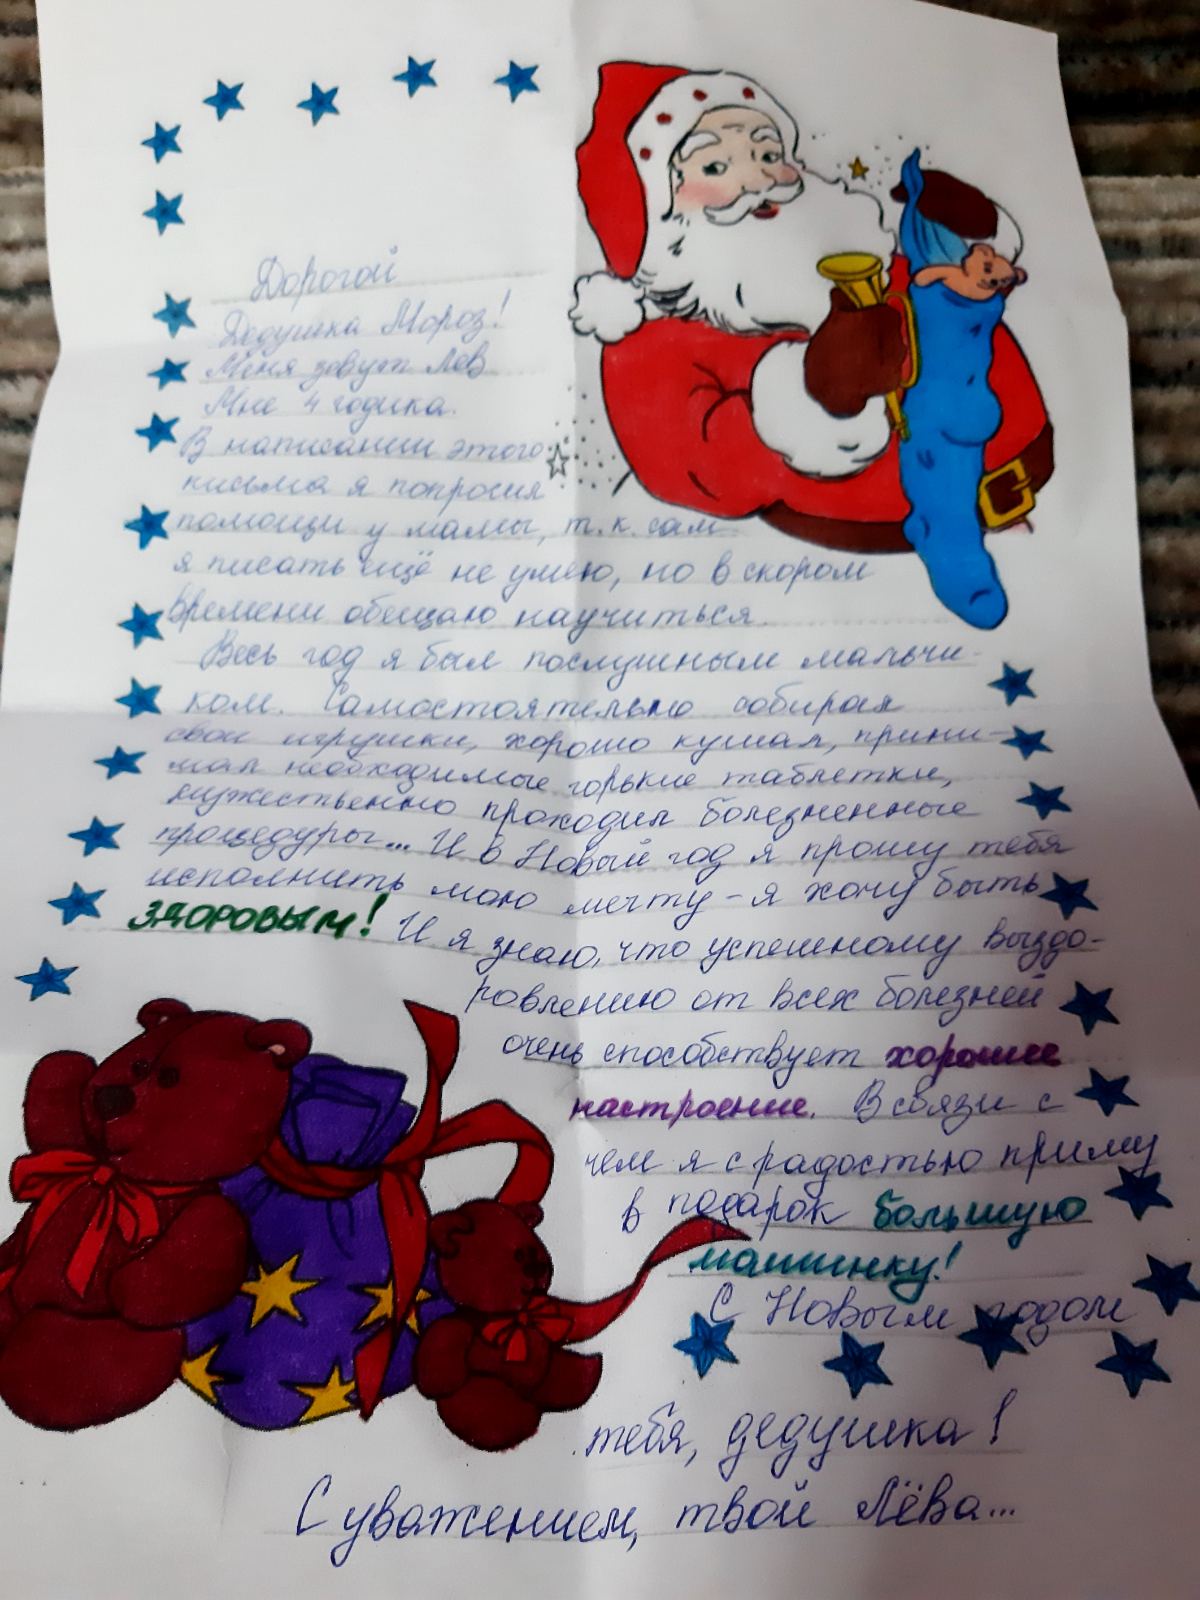 Дорогой
Дедушка Мороз!
Меня зовут Лев
Мне 4 годика.
В написании этого
письма я попросил
помощи у мамы, т.к. сам
я писать ещё не умею, но в скором
времени обещаю научиться.
Весь год я был послушным мальчи-
ком. Самостоятельно собирал
свои игрушки, хорошо кушал, прини-
мал необходимые горькие таблетки,
мужественно проходил болезненные
процедуры... И в Новый год я прошу тебя
исполнить мою мечту - я хочу быть
ЗДОРОВЫМ! И я знаю, что успешному выздо-
ровлению от всех болезней
очень способствует хорошее
настроение. В связи с
чем я с радостью приму
в подарок большую
машинку!
С Новым годом
тебя, дедушка!
С уважением, твой Лёва...